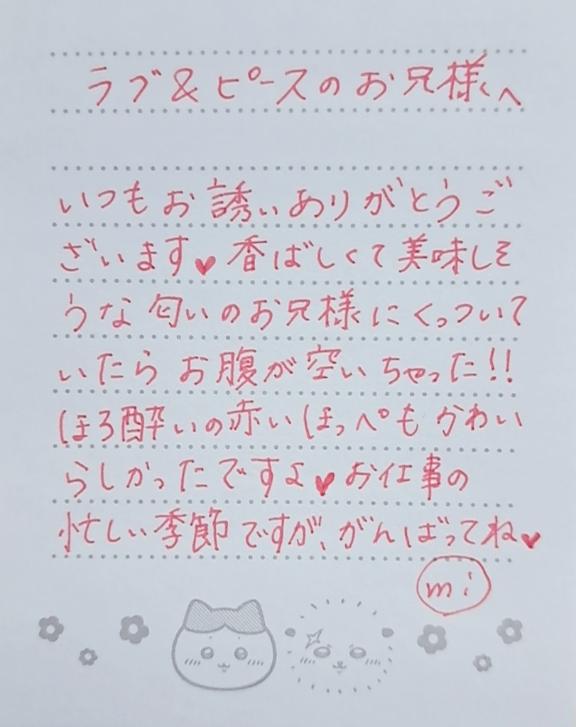 ラブ&ピースのお兄様へ
いつもお誘いありがとうご
ざいます♥香ばしくて美味しそ
うな匂いのお兄様にくっついて
いたらお腹が空いちゃった!!
ほろ酔いの赤いほっぺもかわい
らしかったですよ♥お仕事の
忙しい季節ですが、がんばってね♥
mi